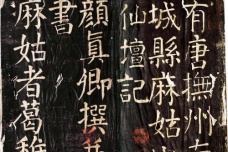 有唐撫州
城縣麻姑山
仙壇記
顏眞卿撰并
書
麻姑者葛稚